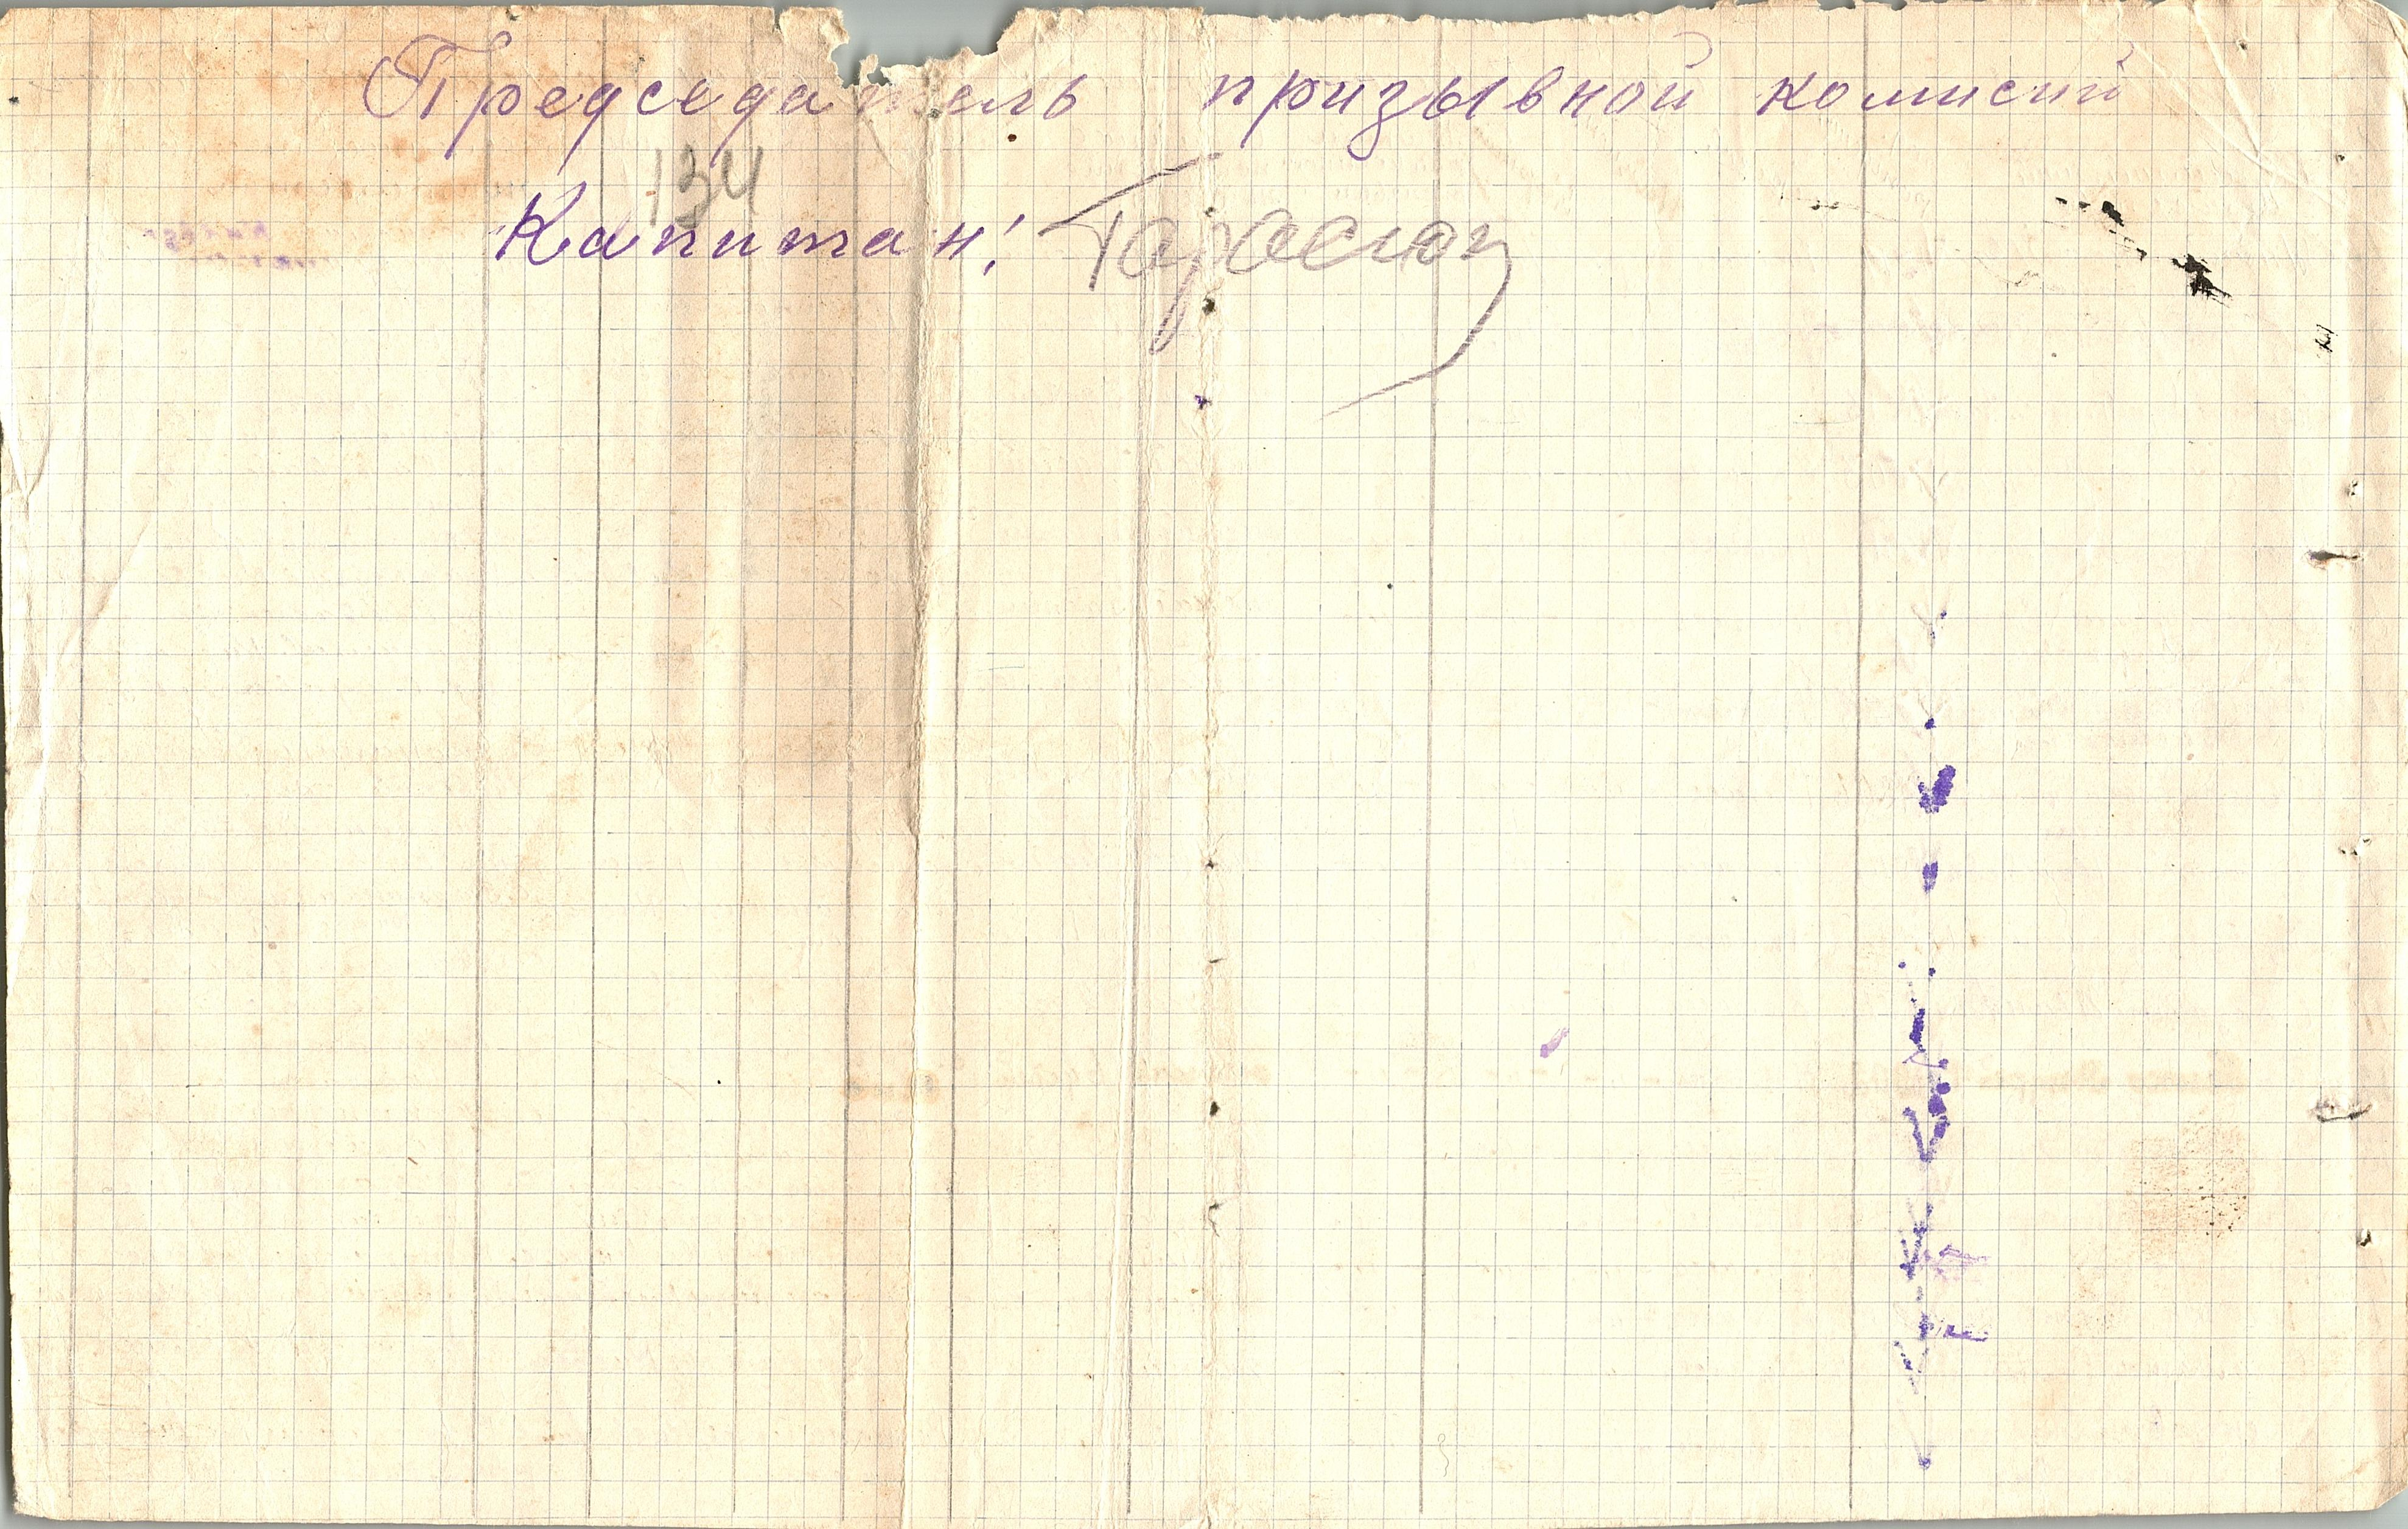 Председатель призывной комисий
134
Капитан: